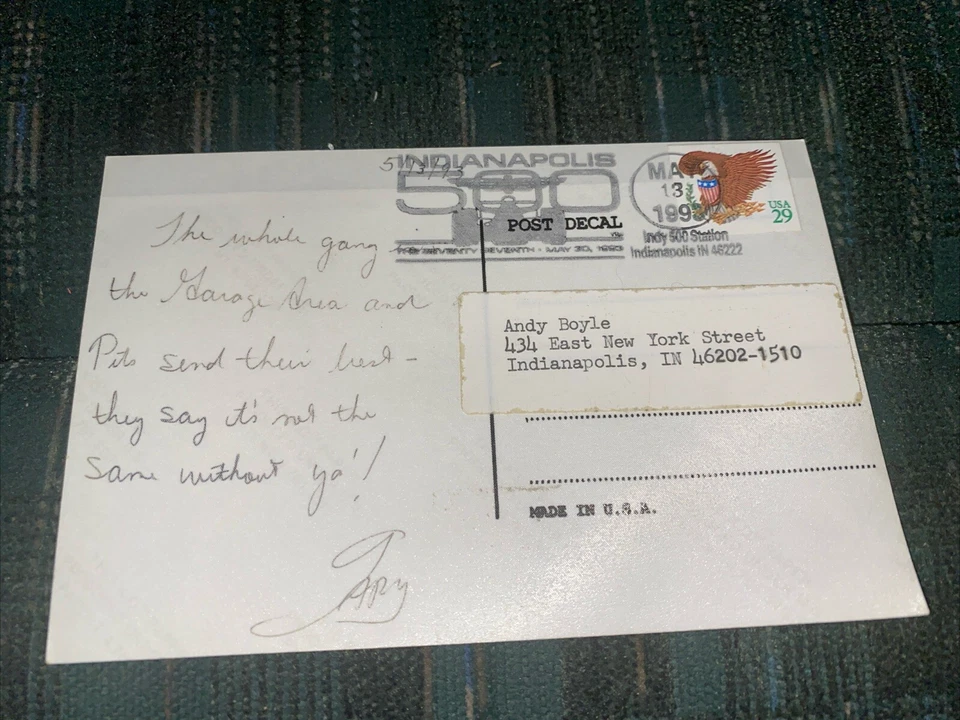 5/13/93
INDIANAPOLIS
500
THE SEVENTY SEVENTH - MAY 30, 1993
MAY
13
1993
Indy 500 Station
Indianapolis IN 46222
USA
29
POST DECAL
The whole gang
the Garage Area and
Pits send their best -
they say it's not the
same without ya'!
Gary
Andy Boyle
434 East New York Street
Indianapolis, IN 46202-1510
MADE IN U.S.A.